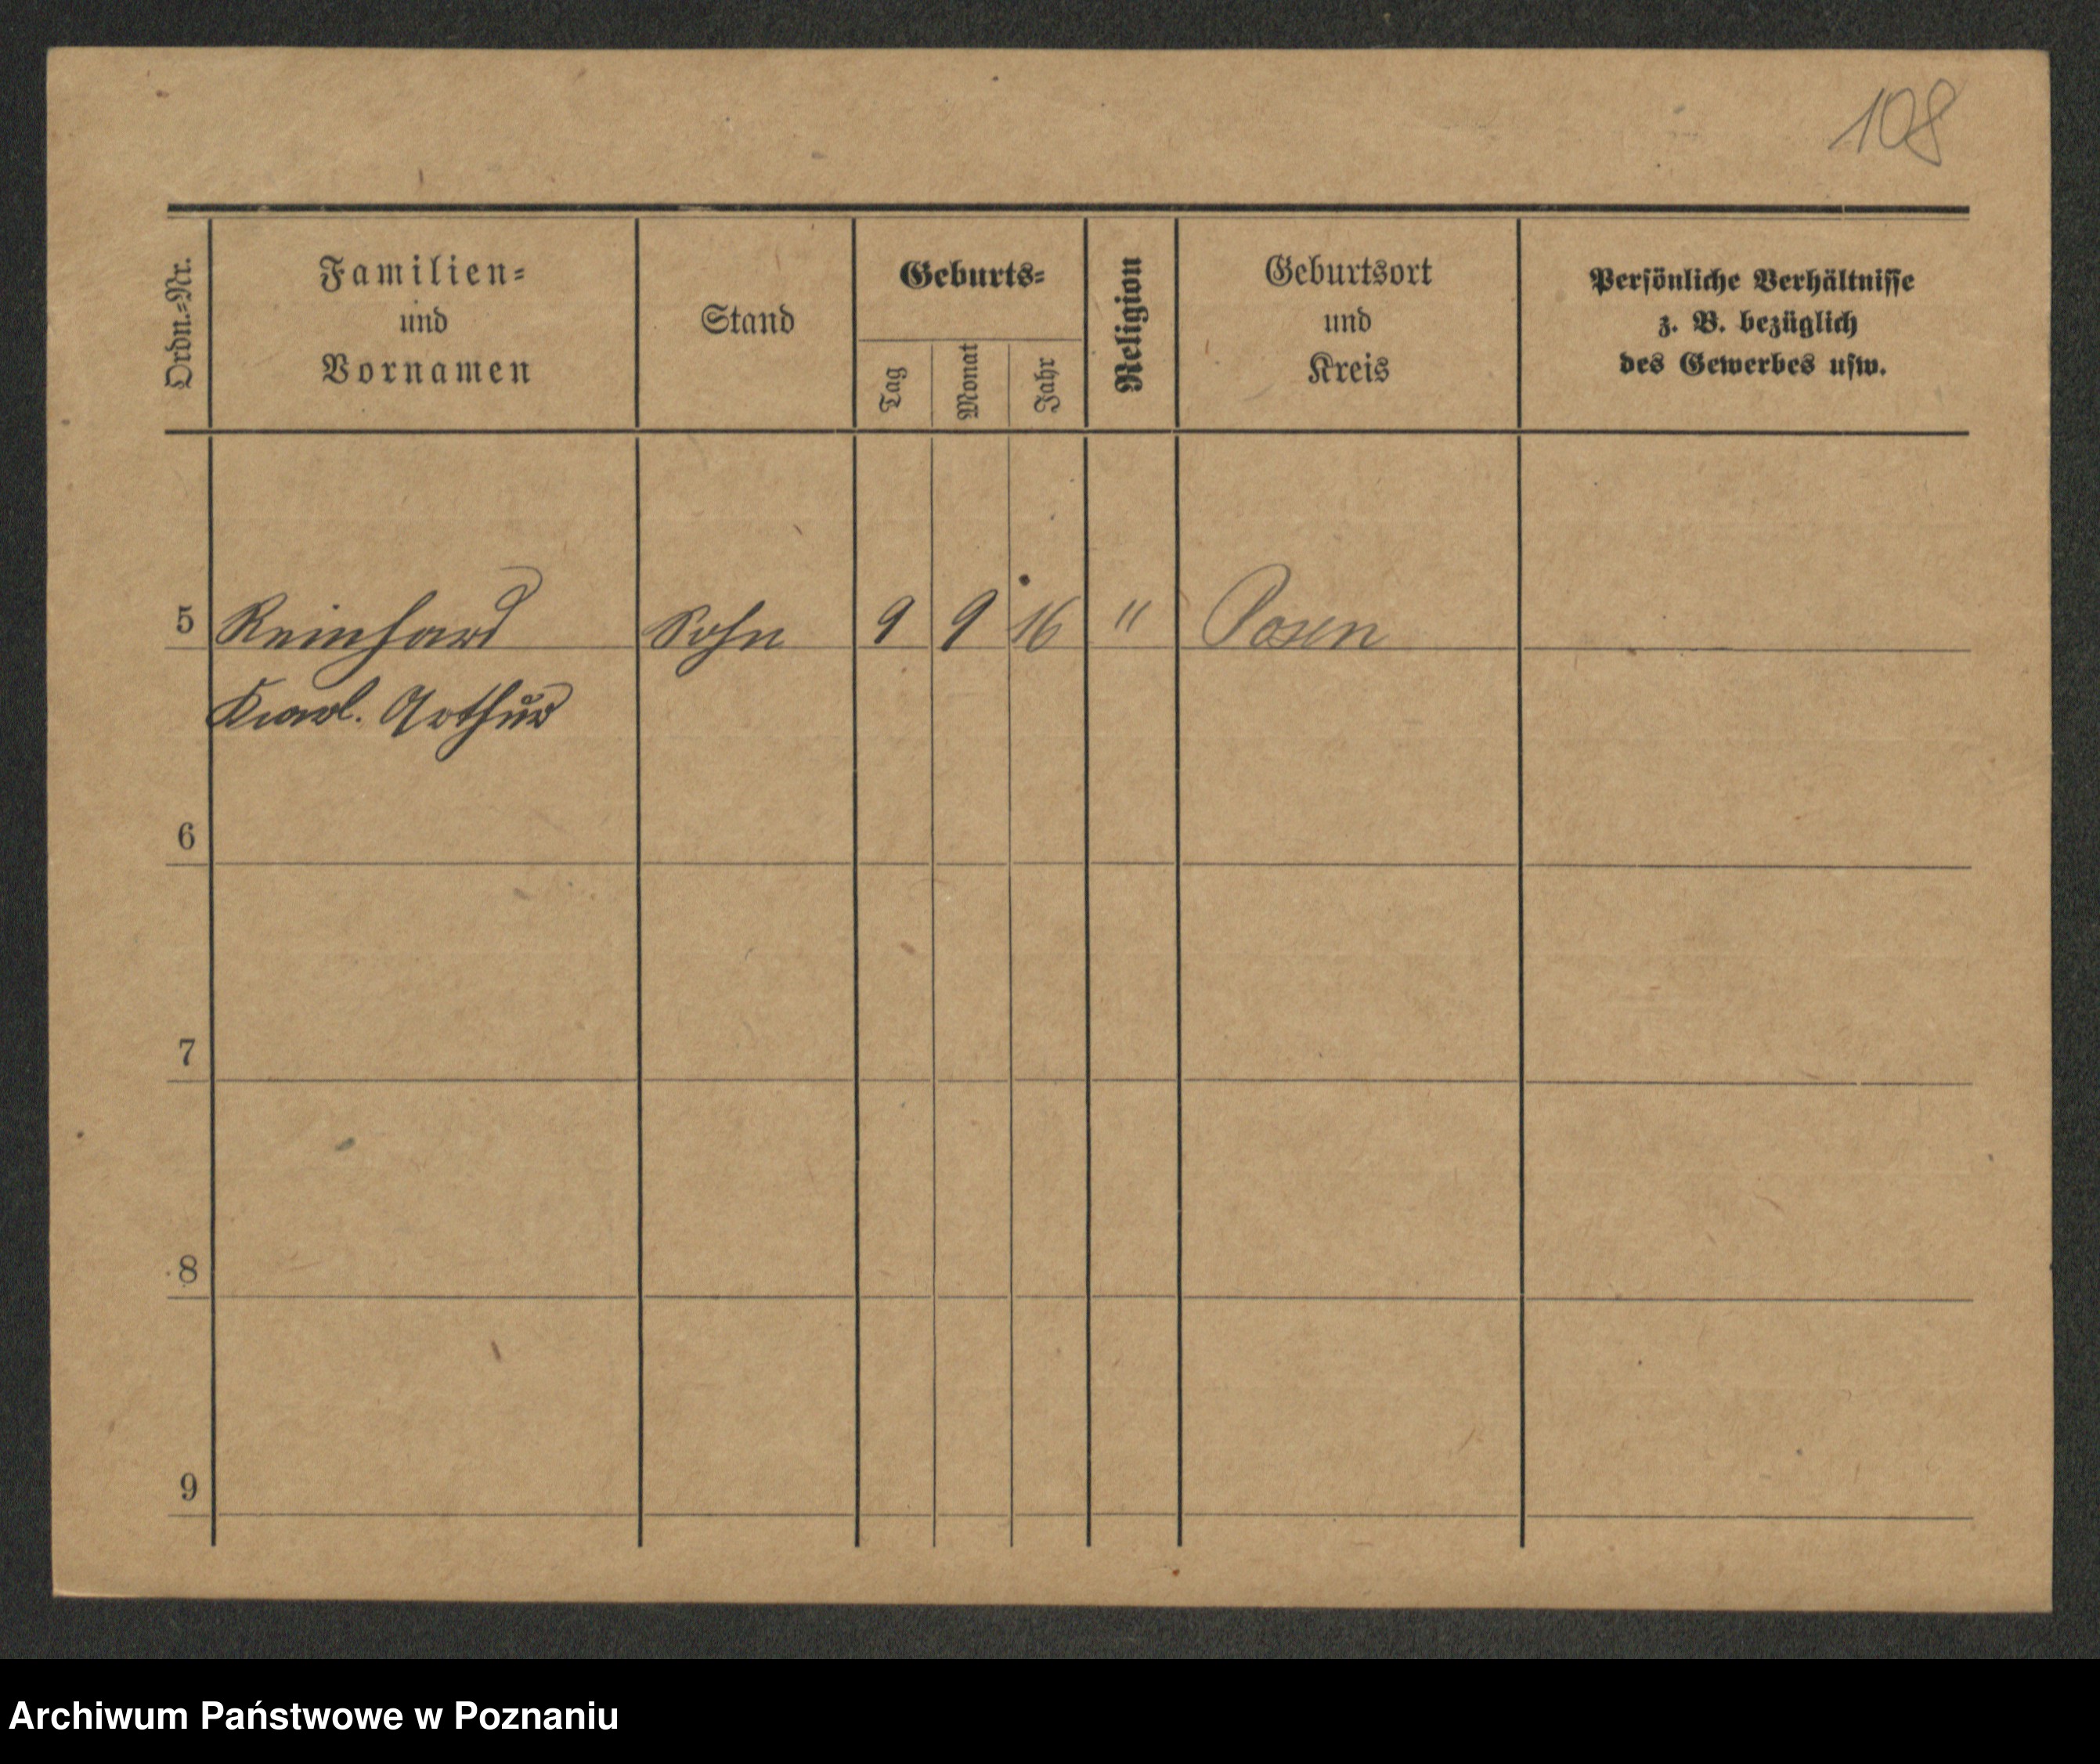 108
Ordn.-Nr.
Familien-
und
Vornamen
Stand
Geburts-
Tag
Monat
Jahr
Religion
Geburtsort
und
Kreis
Persönliche Verhältnisse
z. B. bezüglich
des Gewerbes usw.
5 Reinhard Sohn 9 9 16 " Posen
Karl. Arthur
6
7
8
9
Archiwum Państwowe w Poznaniu